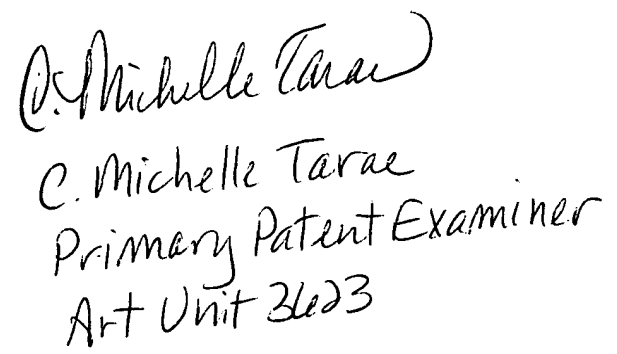 C. Michelle Tarae
C. Michelle Tarae
Primary Patent Examiner
Art Unit 3623